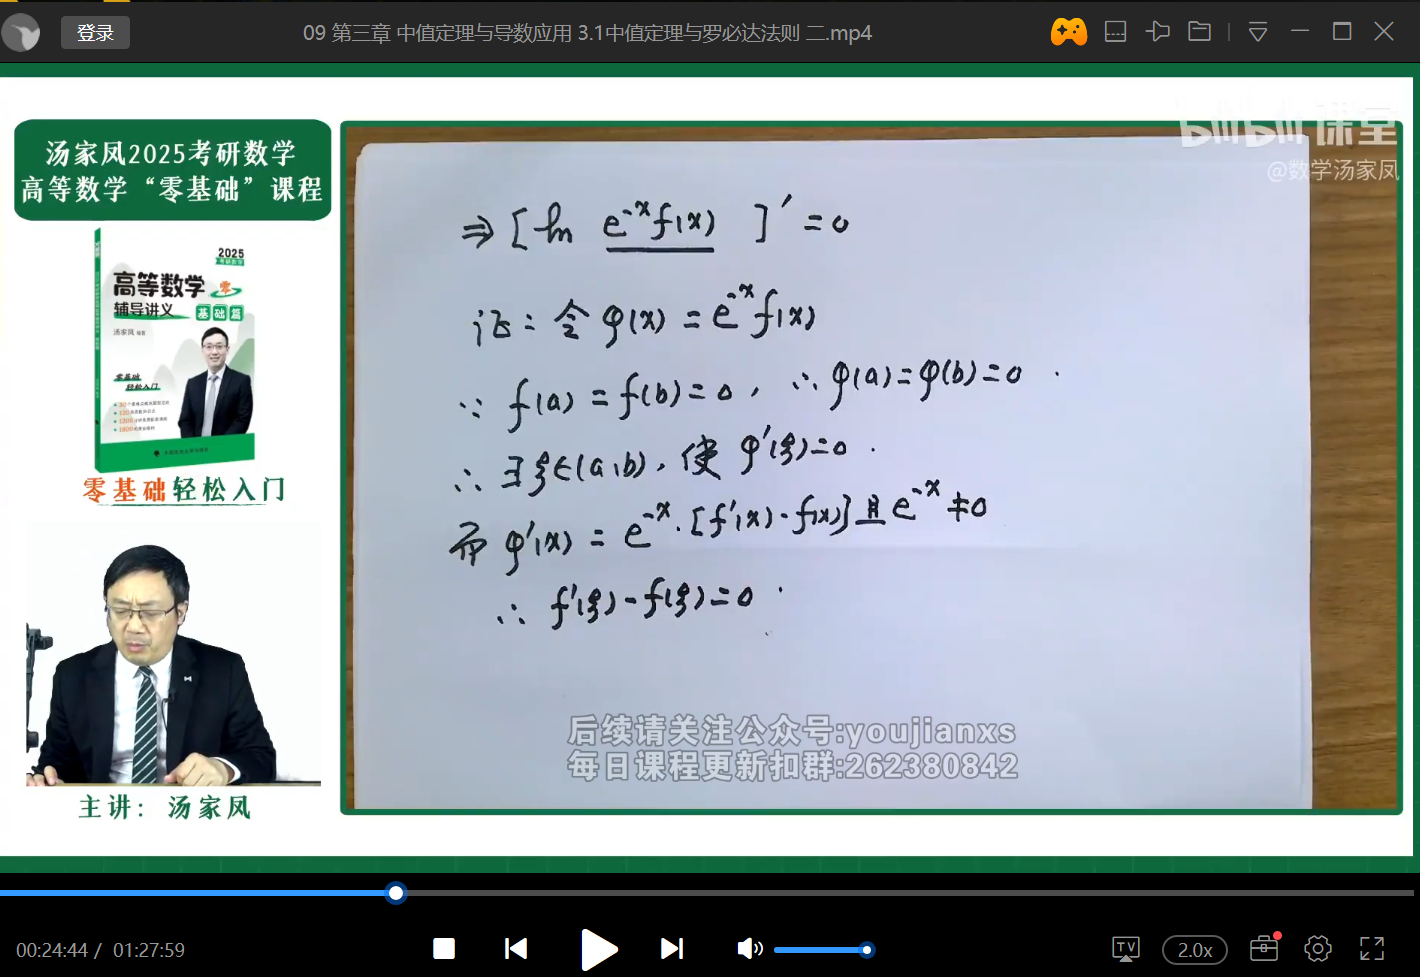 登录
09 第三章 中值定理与导数应用 3.1中值定理与罗必达法则 二.mp4
汤家凤2025考研数学
高等数学“零基础”课程
2025
高等数学 零
辅导讲义 基础篇
汤家凤
零基础
轻松入门
零基础轻松入门
主讲：汤家凤
bilibili课堂
@数学汤家凤
⇒ [ln e⁻ˣf(x) ]′ = 0
证：令 φ(x) = e⁻ˣf(x)
∵ f(a) = f(b) = 0，∴ φ(a) = φ(b) = 0 .
∴ ∃ξ∈(a,b)，使 φ′(ξ) = 0 .
而 φ′(x) = e⁻ˣ·[f′(x) - f(x)] 且 e⁻ˣ ≠ 0
∴ f′(ξ) - f(ξ) = 0 .
后续请关注公众号:youjianxs
每日课程更新扣群:262380842
00:24:44 / 01:27:59
TV
2.0x